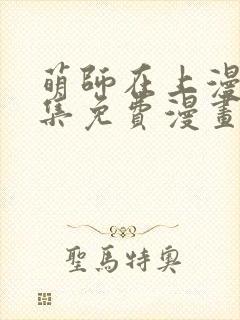 萌師在上漫
集免費漫畫
聖馬特奧